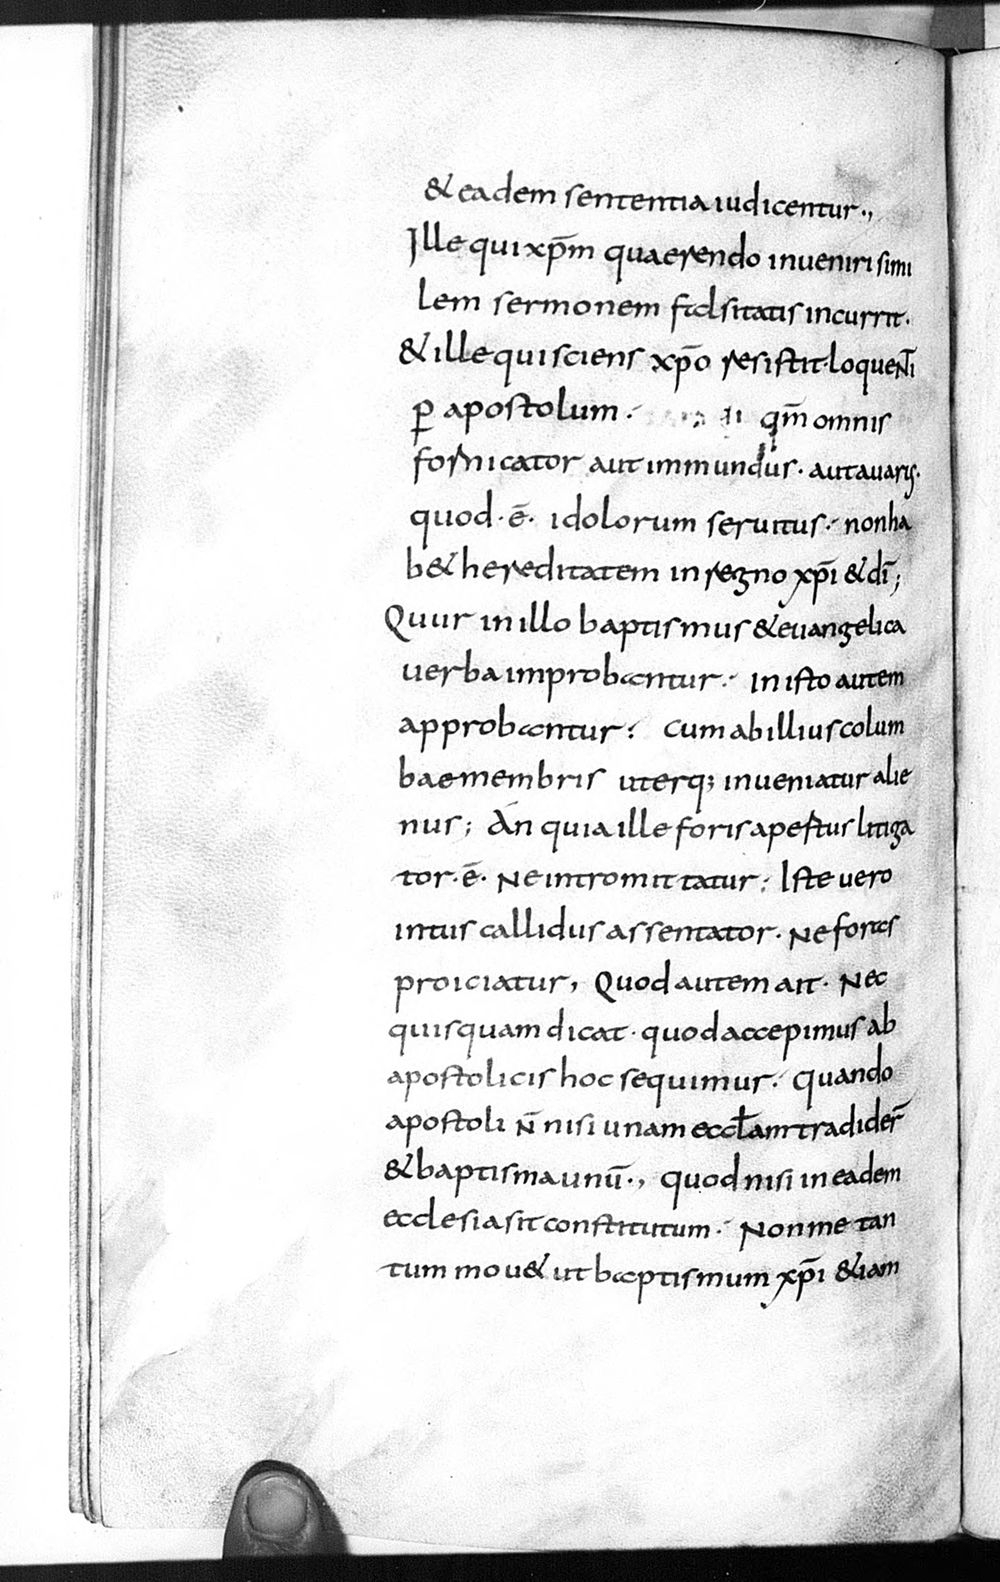 & eadem sententia iudicentur.,
Ille qui xp̄m quaerendo inueniri simi
lem sermonem falsitatis incurrit.
& ille qui sciens xp̄o resistit. loquenti
ꝑ apostolum. qm̄ omnis
fornicator aut inmundus. aut auarus.
quod. ē. idolorum seruitus. non ha
b& hereditatem in regno xp̄i & dī;
Quur in illo baptismus & euangelica
uerba improbantur. In isto autem
approbantur? Cum ab illius colum
bae membris uterq; inueniatur alie
nus; An quia ille foris apertus litiga
tor. ē. Ne intromittatur; Iste uero
intus callidus assentator. Ne foras
proiciatur, Quod autem ait. Nec
quisquam dicat. quod accepimus ab
apostolicis hoc sequimur. Quando
apostoli n̄ nisi unam eccłam tradider̄
& baptisma unū., quod nisi in eadem
ecclesia sit constitutum. Non me tan
tum mou& ut baptismum xp̄i &iam